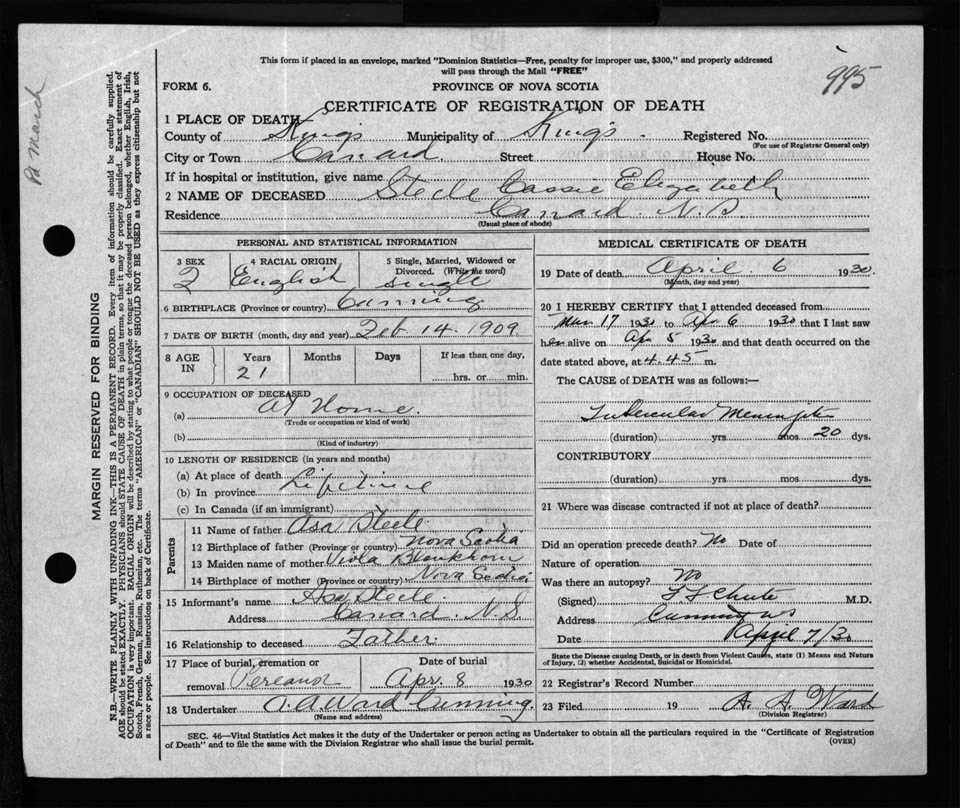 995
Pd March
This form if placed in an envelope, marked "Dominion Statistics—Free, penalty for improper use, $300," and properly addressed
will pass through the Mail "FREE"
FORM 6. PROVINCE OF NOVA SCOTIA
CERTIFICATE OF REGISTRATION OF DEATH
1 PLACE OF DEATH
County of Kings Municipality of Kings Registered No.
(For use of Registrar General only)
City or Town Canard. Street House No.
If in hospital or institution, give name
2 NAME OF DECEASED Steele Cassie Elizabeth
Residence Canard. N.S
(Usual place of abode)
PERSONAL AND STATISTICAL INFORMATION
3 SEX 4 RACIAL ORIGIN 5 Single, Married, Widowed or
Divorced. (Write the word)
English single
6 BIRTHPLACE (Province or country) Canning
7 DATE OF BIRTH (month, day and year) Feb 14. 1909
8 AGE IN Years Months Days If less than one day,
21 hrs. or min.
9 OCCUPATION OF DECEASED
(a) At Home.
(Trade or occupation or kind of work)
(b)
(Kind of industry)
10 LENGTH OF RESIDENCE (in years and months)
(a) At place of death
(b) In province Lifetime
(c) In Canada (if an immigrant)
Parents
11 Name of father Asa Steele.
12 Birthplace of father (Province or country) Nova Scotia
13 Maiden name of mother Viola
14 Birthplace of mother (Province or country) Nova Scotia
15 Informant's name Asa Steele.
Address Canard. N.S.
16 Relationship to deceased Father.
17 Place of burial, cremation or Date of burial
removal Apr. 8 1930
18 Undertaker A. A Ward Canning.
(Name and address)
MEDICAL CERTIFICATE OF DEATH
19 Date of death April. 6 1930
(Month, day and year)
20 I HEREBY CERTIFY that I attended deceased from
Mar. 17 1930 to Apr 6 1930 that I last saw
her alive on Apr 5 1930 and that death occurred on the
date stated above, at 4.45 m.
The CAUSE OF DEATH was as follows:—
Tubercular Meningitis
(duration) yrs mos 20 dys.
CONTRIBUTORY
(duration) yrs. mos. dys.
21 Where was disease contracted if not at place of death?
Did an operation precede death? No Date of
Nature of operation
Was there an autopsy? No
(Signed) Chute M.D.
Address Canning NS
Date April 7/30
State the Disease causing Death, or in death from Violent Causes, state (1) Means and Nature
of Injury, (2) whether Accidental, Suicidal or Homicidal.
22 Registrar's Record Number
23 Filed 19 A. A. Ward
(Division Registrar)
SEC. 46—Vital Statistics Act makes it the duty of the Undertaker or person acting as Undertaker to obtain all the particulars required in the "Certificate of Registration
of Death" and to file the same with the Division Registrar who shall issue the burial permit. (OVER)
MARGIN RESERVED FOR BINDING
N.B.—WRITE PLAINLY WITH UNFADING INK—THIS IS A PERMANENT RECORD. Every item of information should be carefully supplied.
AGE should be stated EXACTLY. PHYSICIANS should STATE CAUSE OF DEATH in plain terms, so that it may be properly classified. Exact statement of
OCCUPATION is very important. RACIAL ORIGIN will be described by stating to what people or tongue the deceased person belonged, whether English, Irish,
Scotch, French, German, Russian, Ruthenian, etc. The terms "AMERICAN" or "CANADIAN" SHOULD NOT BE USED as they express citizenship but not
a race or people. See instructions on back of Certificate.